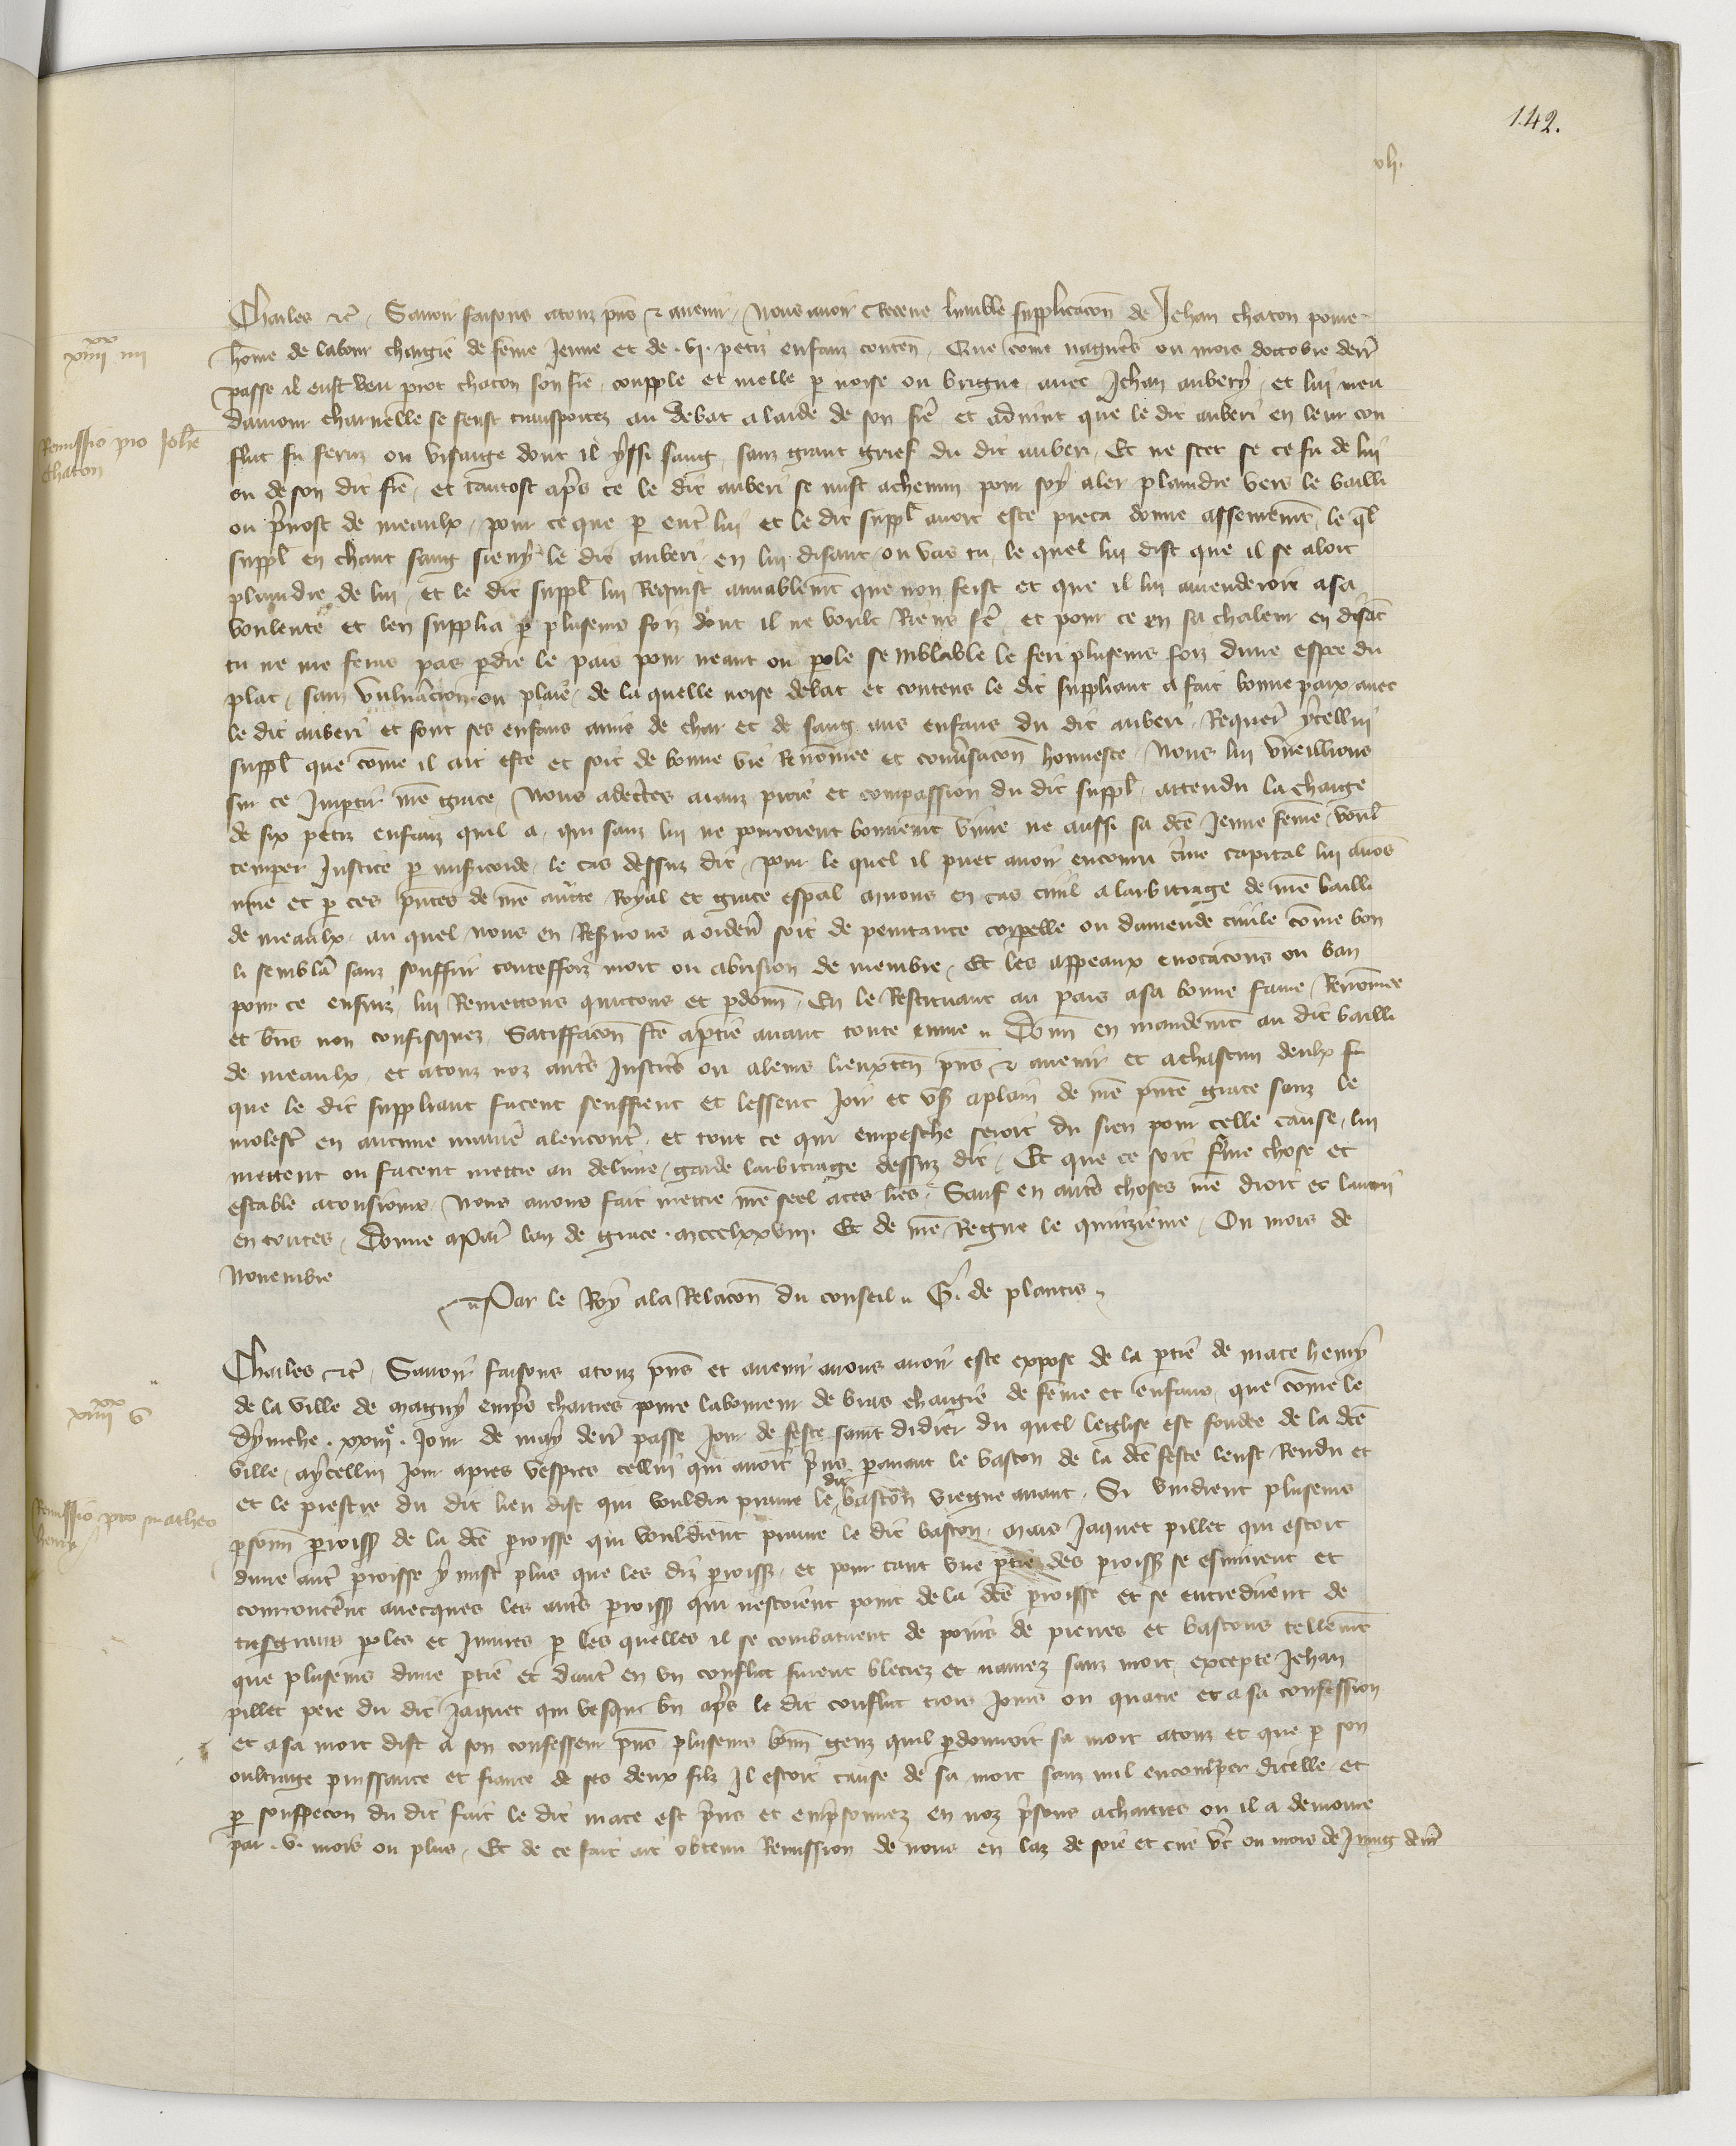 142.
vii.
Charles etc. Savoir faisons a touz pns et avenir Nous avoir Receue lumble supplicacon de Jehan chaton povre
xx
xiiii iiii
home de labour chargie de feme Jeune et de .vi. petiz enfanz conten Que come nagueres ou mois doctobre derr
passe il eust veu prot chaton son fre coupple et melle p noise ou brigue avec Jehan aubery et lui meu
damour charnelle se feust transportez au debat a laide de son fre et advint que le dit auberi en leur con
Remissio pro Johe
chaton
flict fu feruz ou visaige dont il yssi sang sanz grant grief du dit auberi Et ne scet se ce fu de lui
ou de son dit fre et tantost apres ce le dit auberi se mist achemin pour soy aler plaindre vers le bailli
ou prevost de meaulx pour ce que p entre lui et le dit suppl avoit este pieca donne assentement le ql
suppl en chaut sang sievy le dit auberi en lui disant ou vas tu le quel lui dist que il se aloit
plaindre de lui et le dit suppl lui Requist amiablemt que non feist et que il lui amenderoit a sa
voulente et len supplia p pluseurs foiz dont il ne voult Riens fe et pour ce en sa chaleur en disat
tu ne me feras pas pdre le pais pour neant ou pole semblable le feri pluseurs foiz dune espee du
plat sanz vulnacion ou plaie de la quelle noise debat et contens le dit suppliant a fait bonne paix avec
le dit auberi et sont ses enfans amis de char et de sang aus enfans du dit auberi Requer ycellui
suppl que come il ait este et soit de bonne vie Renomee et conversacon honneste Nous lui vueillions
sur ce Impartir nre grace Nous adecertes aianz pitie et compassion du dit suppl attendu la charge
de six petiz enfanz quil a qui sanz lui ne pourroient bonnement vivre ne aussi sa dce Jeune feme voul
temper Justice p misericorde le cas dessuz dit pour le quel il puet avoir encouru crime capital lui avos
mue et p ces pntes de nre aucte Royal et grace espal muons en cas civil a larbitrage de nre bailli
de meaulx au quel nous en Reservons a ordener soit de penitance corpelle ou damende civile come bon
li semblera sanz souffrir toutesfoiz mort ou abcision de membre Et les appeaux evocacons ou ban
pour ce ensuiz lui Remettons quittons et pdonn En le Restituant au pais a sa bonne fame Renomee
et bns non confisquez Satiffacon fce aptie avant toute euvre Donn en mandemt au dit bailli
de meaulx et a touz noz autres Justiciers ou a leurs lieuxten pns et avenir et achascun deulx
que le dit suppliant facent seuffrent et lessent Joir et user a plain de nre pnte grace sanz le
molester en aucune maniere alencontre et tout ce qui empesche seroit du sien pour celle cause lui
mettent ou facent mettre au delivre garde larbitrage dessuz dit Et que ce soit ferme chose et
estable a tousjours Nous avons fait mettre nre seel a ces lres Sauf en autres choses nre droit et lautrui
en toutes Donne a Paris lan de grace mccclxxviii Et de nre Regne le quinzieme Ou mois de
Novembre
Par le Roy a la Relacon du conseil G. de plantis
Charles etc. Savoir faisons a touz pns et avenir avons avoir este expose de la ptie de mace henry
xx
xiiii v
de la ville de magny empres chartres povre laboureur de bras chargie de feme et enfans que come le
dymche .xxiiie. Jour de may derr passe Jour de feste saint didier du quel leglise est fondee de la dce
ville aycellui Jour apres vespres cellui qui avoit prins pavant le baston de la dce feste leust Rendu et
Remissio pro matheo
henry
et le prestre du dit lieu dist qui vouldra pranre le dit baston viegne avant Si vindrent pluseurs
psonn proiss de la dce proisse qui vouldrent pranre le dit baston mais Jaquet pillet qui estoit
dune autre proisse y mist plus que les diz proiss et pour tant une ptie des proiss se esmurent et
courroucerent avecques les autres proiss qui nestoient point de la dce proisse et se entredirent de
tresgrans poles et Injures p les quelles il se combatirent de poins de pierres et bastons tellemt
que pluseurs dune ptie et dautre en un conflict furent bleciez et navrez sanz mort excepte Jehan
pillet pere du dit Jaquet qui vesqui bn apres le dit conflict trois Jours ou quatre et a sa confession
et a sa mort dist a son confesseur pns pluseurs bonn genz quil pdonnoit sa mort a touz et que p son
oultrage puissance et fiance de ses deux filz Il estoit cause de sa mort sanz nul encoulper dicelle et
p souspecon du dit fait le dit mace est prins et emprisonnez en noz prisons achartres ou il a demoure
par .v. mois ou plus Et de ce fait ait obtenu Remission de nous en laz de soie et cire vert ou mois de Juing derr